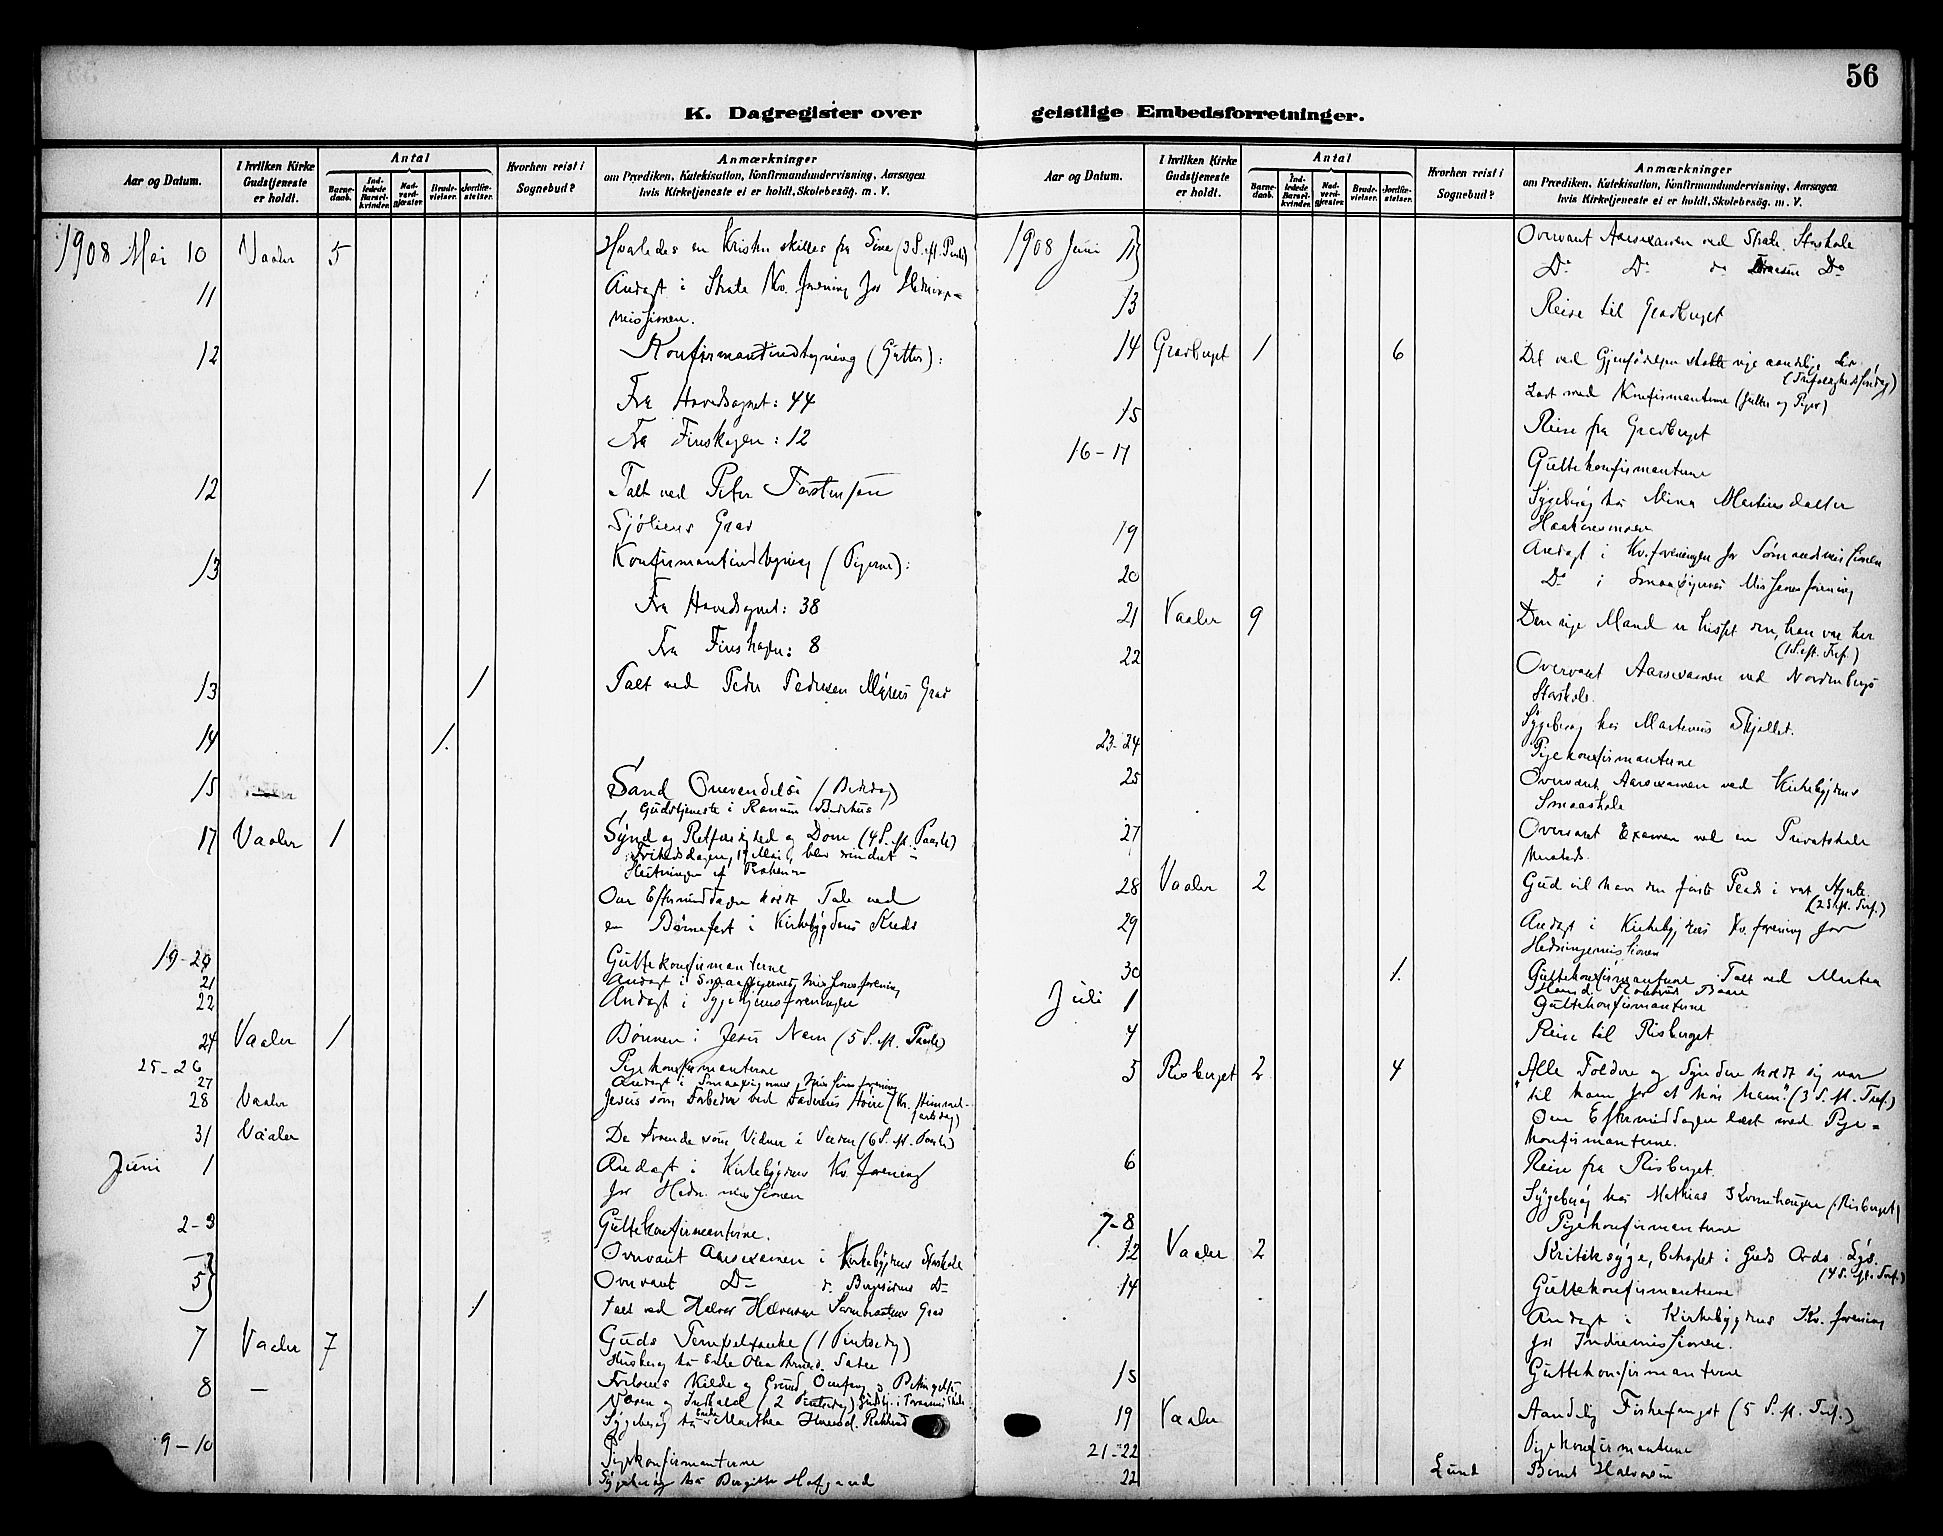 56
K. Dagregister over geistlige Embedsforretninger.
Aar og Datum.
I hvilken Kirke Gudstjeneste er holdt.
Antal
Barne-daab.
Ind-ledede Barsel-kvinder.
Nad-verd-gjæster.
Brude-vielser.
Jordfæ-stelser.
Hvorhen reist i Sognebud?
Anmærkninger
om Prædiken, Katekisation, Konfirmandundervisning, Aarsagen
hvis Kirketjeneste ei er holdt, Skolebesøg. m. V.
1908 Mai 10 Vaaler 5 Hvaledes en Kristen skilles fra Sine (3 S. ft. Paaske)
11 Andagt i Strate Kv. forening for Hedninge-
missionen.
12 Konfirmantindtegning (Gutter):
Fra Hovedsognet: 44
Fra Finskogen: 12
12 1 Talt ved Peter Torstensen
Sjöliens Grav
13 Konfirmantindtegning (Pigerne):
Fra Hovedsognet: 38
Fra Finskogen: 8
13 1 Talt ved Peder Pedersen Myrens Grav
14 1.
15 Sand Omvendelse (Bededag)
Gudstjeneste i Bedehus
17 Vaaler 1 Synd og Retfærdighed og Dom (4 S. ft. Paaske)
Frihedsdagen, 17 Mai, blev mindet
Om Eftermiddagen holdt Tale ved
en Børnefest i Kirkebygdens Kreds
19-20 Guttekonfirmanterne
21 Andagt i Smaapigernes Missionsforening
22 Andagt i Sygepleieforeningen
24 Vaaler 1 Bønnen i Jesu Navn (5 S. ft. Paaske)
25-26 Pigekonfirmanterne
27 Andagt i Smaapigernes Missionsforening
28 Vaaler Jesus som Forbeder ved Faderens Høire (Kr. Himmel-
fartsdag)
31 Vaaler De Troende som Vidner i Verden (6 S. ft. Paaske)
Juni 1 Andagt i Kirkebygdens Kv. forening
for Hedn. missionen
2-3 Guttekonfirmanterne.
Overvært Aarsexamen i Kirkebygdens Storskole
5 Overvært Do Do
1 Talt ved Halvor Halvorsen Grav
7 Vaaler 7 Guds Tempel (1 Pintsedag)
8 — Kilde og Grund
(2 Pintsedag)
Sygebesøg hos Enke Marthea
9-10 Pigekonfirmanterne
Sygebesøg hos Birgitte Hofgaard
Aar og Datum.
I hvilken Kirke Gudstjeneste er holdt.
Antal
Barne-daab.
Ind-ledede Barsel-kvinder.
Nad-verd-gjæster.
Brude-vielser.
Jordfæ-stelser.
Hvorhen reist i Sognebud?
Anmærkninger
om Prædiken, Katekisation, Konfirmandundervisning, Aarsagen
hvis Kirketjeneste ei er holdt, Skolebesøg. m. V.
1908 Juni 11 Overvært Aarsexamen ved Strate Storskole
Do Do do Do
13 Reise til Gravberget
14 Gravberget 1 6 Det ved Gjenfødelsen skabte nye aandelige Liv
(Trefoldighedssøndag)
Læst med Konfirmanterne (Gutter og Piger)
15 Reise fra Gravberget
16-17 Guttekonfirmanterne
Sygebesøg hos Mina Martinsdatter
Haakonsmoen
19 Andagt i Kv. foreningen for Sømandsmissionen
20 Do i Smaapigernes Missionsforening
21 Vaaler 9 Den rige Mand er hisset den, han var her
(1 S. ft. Tref.)
22 Overvært Aarsexamen ved Nordenbergs
Storskole.
Sygebesøg hos Martinus Skjellet.
23-24 Pigekonfirmanterne
25 Overvært Aarsexamen ved Kirkebygdens
Smaaskole
27 Overvært Examen ved en Privatskole
28 Vaaler 2 Gud vil have den første Plads i vort Hjerte.
(2 S. ft. Tref.)
29 Andagt i Kirkebygdens Kv. forening for
Hedningemissionen
30 1. Guttekonfirmanterne. Talt ved Martea
Baare
Juli 1 Guttekonfirmanterne
4 Reise til Risberget.
5 Risberget 2 4 "Alle Toldere og Syndere holdt sig nær
til ham for at høre ham." (3 S. ft. Tref.)
Om Eftermiddagen læst med Pige-
konfirmanterne.
6 Reise fra Risberget.
Sygebesøg hos Mathias (Risberget)
7-8 Pigekonfirmanterne
12 Vaaler 2 Kritiksyge, belyst i Guds Ords Lys.
(4 S. ft. Tref.)
14 Guttekonfirmanterne
Andagt i Kirkebygdens Kv. forening
for Indremissionen.
15 Guttekonfirmanterne
19 Vaaler Aandelig Fiskefangst (5 S. ft. Tref.)
21-22 Pigekonfirmanterne
22 Lund Bernt Halvorsen